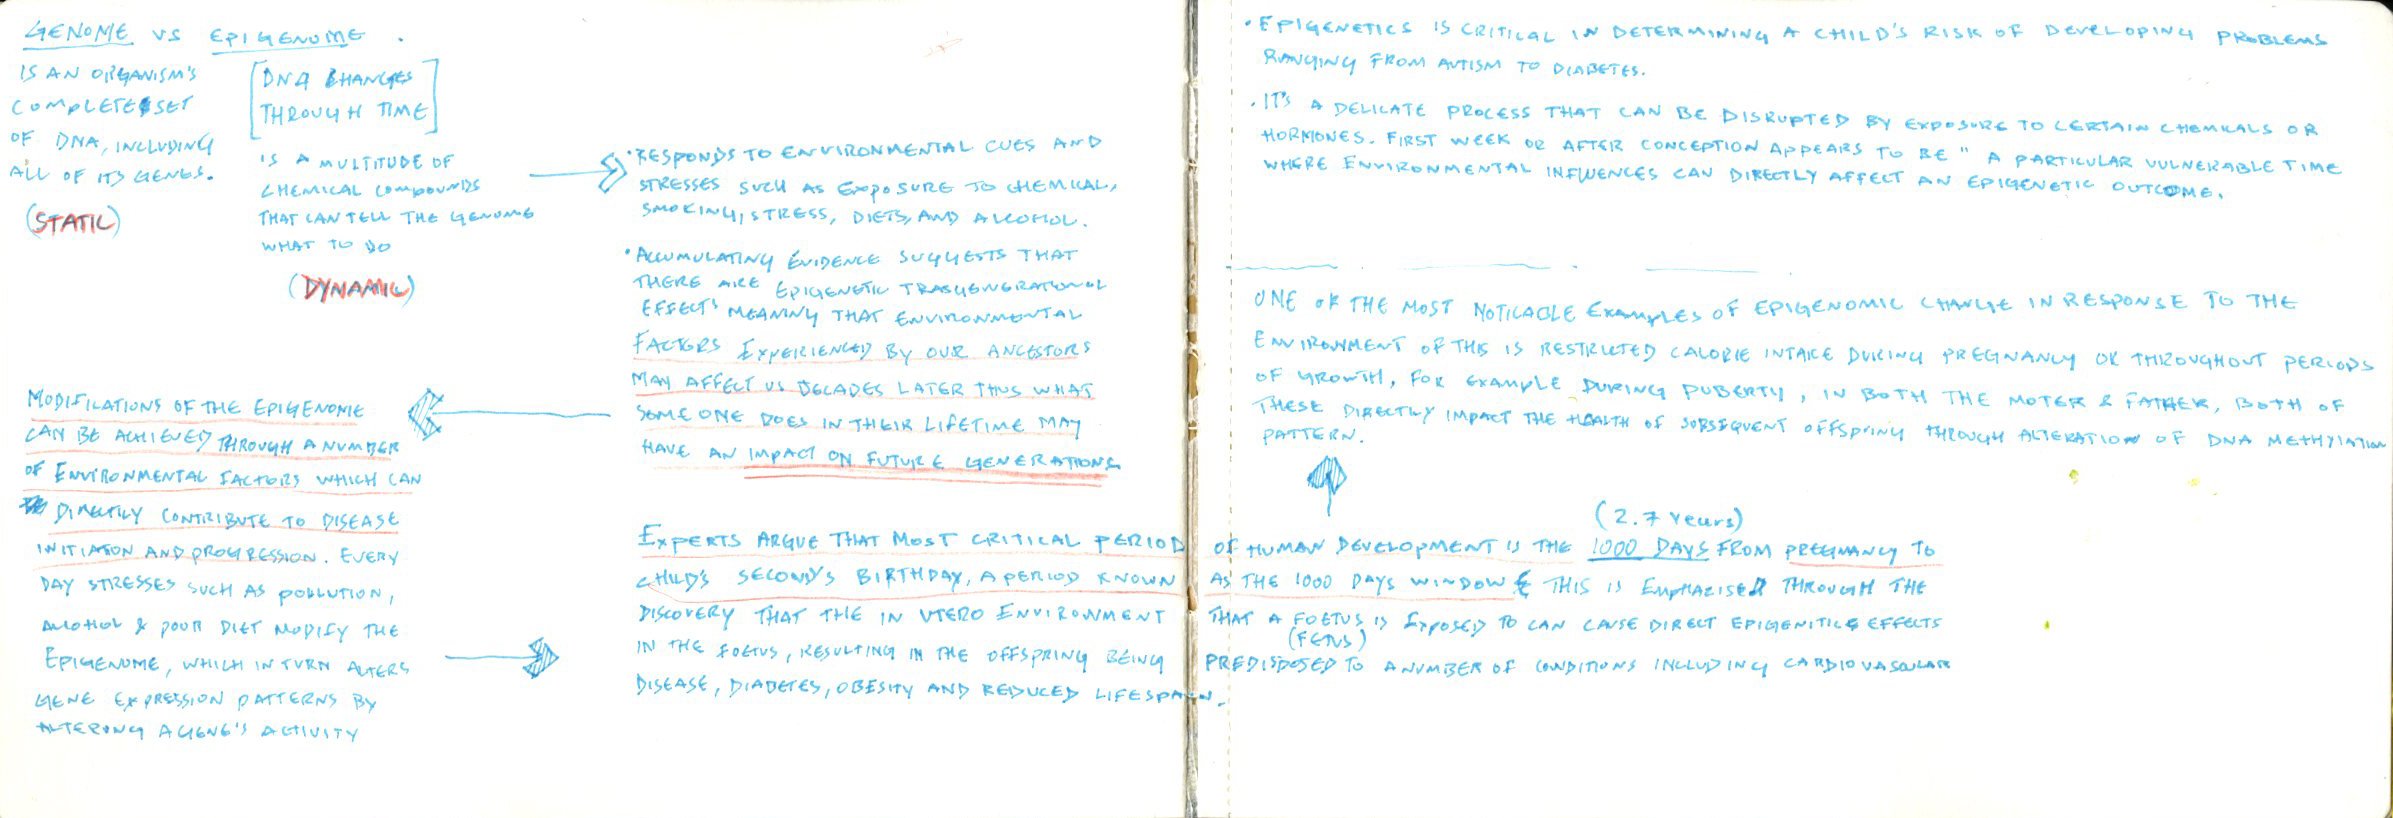 GENOME VS EPIGENOME.
IS AN ORGANISM'S
COMPLETE SET
OF DNA, INCLUDING
ALL OF ITS GENES.
(STATIC)
[DNA CHANGES
THROUGH TIME]
IS A MULTITUDE OF
CHEMICAL COMPOUNDS
THAT CAN TELL THE GENOME
WHAT TO DO
(DYNAMIC)
• RESPONDS TO ENVIRONMENTAL CUES AND
STRESSES SUCH AS EXPOSURE TO CHEMICAL,
SMOKING, STRESS, DIETS, AND ALCOHOL.
• ACCUMULATING EVIDENCE SUGGESTS THAT
THERE ARE EPIGENETIC TRASGENERATIONAL
EFFECT' MEANING THAT ENVIRONMENTAL
FACTORS EXPERIENCED BY OUR ANCESTORS
MAY AFFECT US DECADES LATER THUS WHAT
SOMEONE DOES IN THEIR LIFETIME MAY
HAVE AN IMPACT ON FUTURE GENERATIONS
MODIFICATIONS OF THE EPIGENOME
CAN BE ACHIEVED THROUGH A NUMBER
OF ENVIRONMENTAL FACTORS WHICH CAN
DIRECTLY CONTRIBUTE TO DISEASE
INITIATON AND PROGRESSION. EVERY
DAY STRESSES SUCH AS POLLUTION,
ALCOHOL & POOR DIET MODIFY THE
EPIGENOME, WHICH IN TURN ALTERS
GENE EXPRESSION PATTERNS BY
ALTERING A GENE'S ACTIVITY
(2.7 years)
EXPERTS ARGUE THAT MOST CRITICAL PERIOD OF HUMAN DEVELOPMENT IS THE 1000 DAYS FROM PREGNANCY TO
CHILD'S SECOND'S BIRTHDAY, A PERIOD KNOWN AS THE 1000 DAYS WINDOW & THIS IS EMPHAZISED THROUGH THE
DISCOVERY THAT THE IN UTERO ENVIRONMENT THAT A FOETUS IS EXPOSED TO CAN CAUSE DIRECT EPIGENITICS EFFECTS
(FETUS)
IN THE FOETUS, RESULTING IN THE OFFSPRING BEING PREDISPOSED TO A NUMBER OF CONDITIONS INCLUDING CARDIOVASCULAR
DISEASE, DIABETES, OBESITY AND REDUCED LIFESPAN.
• EPIGENETICS IS CRITICAL IN DETERMINING A CHILD'S RISK OF DEVELOPING PROBLEMS
RANGING FROM AUTISM TO DIABETES.
• IT'S A DELICATE PROCESS THAT CAN BE DISRUPTED BY EXPOSURE TO CERTAIN CHEMICALS OR
HORMONES. FIRST WEEK OR AFTER CONCEPTION APPEARS TO BE " A PARTICULAR VULNERABLE TIME
WHERE ENVIRONMENTAL INFLUENCES CAN DIRECTLY AFFECT AN EPIGENETIC OUTCOME.
ONE OF THE MOST NOTICABLE EXAMPLES OF EPIGENOMIC CHANGE IN RESPONSE TO THE
ENVIRONMENT OF THIS IS RESTRICTED CALORIE INTAKE DURING PREGNANCY OR THROUGHOUT PERIODS
OF GROWTH, FOR EXAMPLE DURING PUBERTY, IN BOTH THE MOTER & FATHER, BOTH OF
THESE DIRECTLY IMPACT THE HEALTH OF SUBSEQUENT OFFSPRING THROUGH ALTERATION OF DNA METHYLATION
PATTERN.